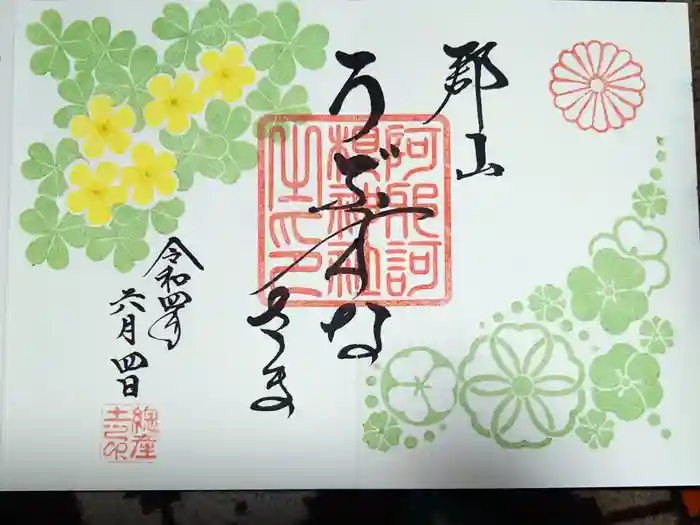 郡山
うぶすな
さま
阿邪訶
根神社
之印
令和四年
六月四日